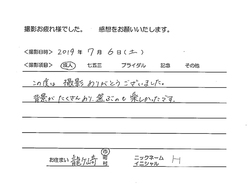 撮影お疲れ様でした。 感想をお願いいたします。
<撮影日時> 2019年 7月 6日(土)
<撮影項目> 成人 七五三 ブライダル 記念 その他
この度は撮影ありがとうございました。
背景がたくさんあり、選ぶのも楽しかったです。
お住まい 龍ケ崎 市 町 村 ニックネーム イニシャル H